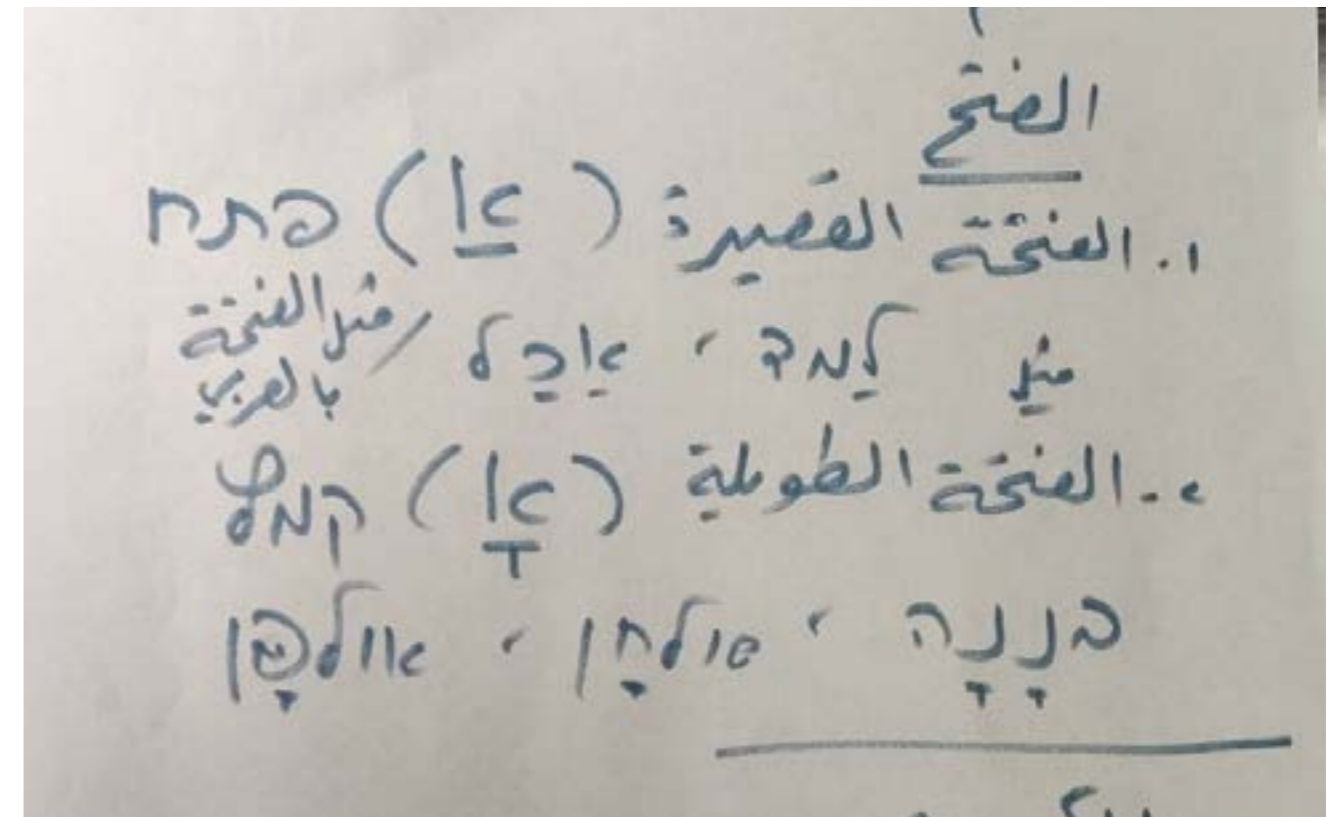 الفتح
١. الفتحة القصيرة: (אַ) פתח
مثل לַמד، אַכַל /مثل الفتحة بالعربي
٢- الفتحة الطويلة (אָ) קמץ
בנָנָה، שולחָן، אולפָן